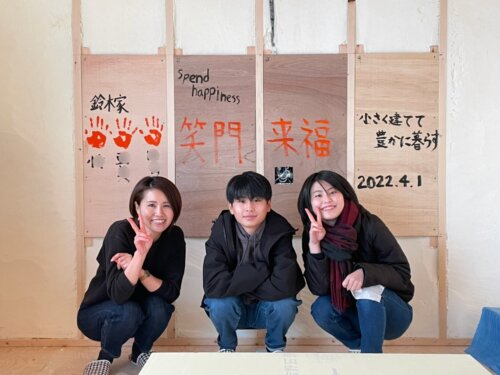 鈴木家
spend
happiness
笑門来福
小さく建てて
豊かに暮らす
2022.4.1